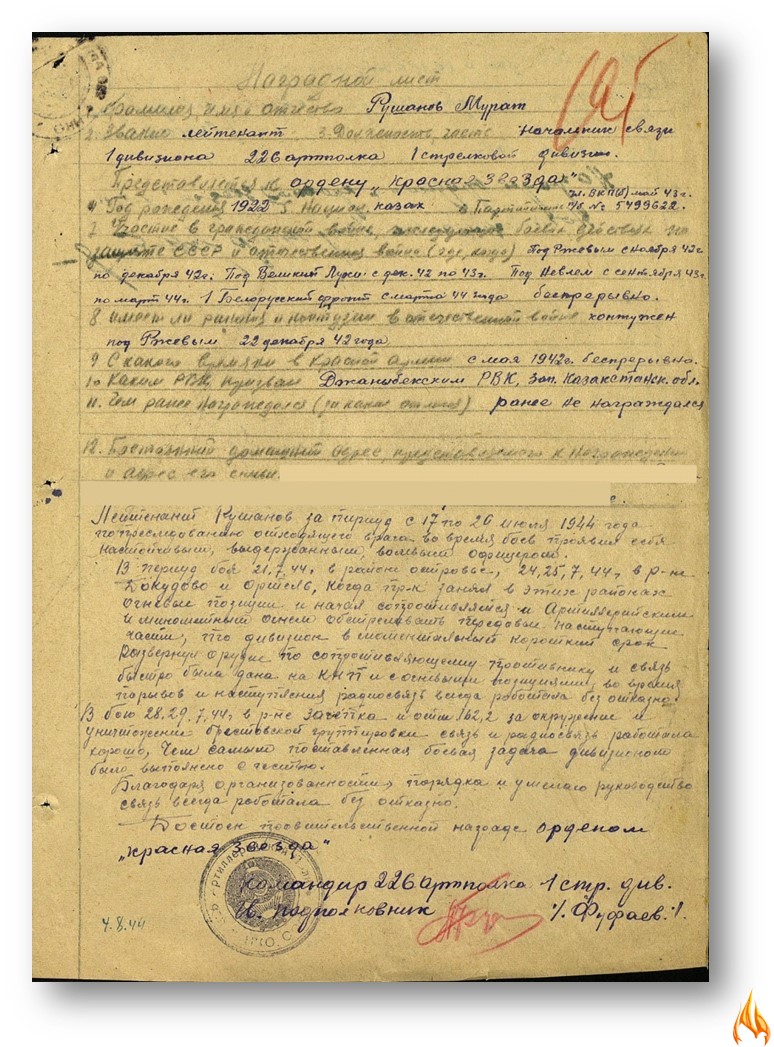 Наградной лист
1. Фамилия имя отчество Рушанов Мурат
2. Звание лейтенант 3. Должность часть Начальник связи
1 дивизиона 226 артполка 1 стрелковой дивизии.
Представляется к ордену „Красная Звезда"
чл. ВКП(б) май 43 г.
4 Год рождения 1922 5. Национ. казак 6 Партийность Чб. № 5499622.
7 Участие в гражданской войне, последующие боевые действия по
защите СССР и отечественной войне (где, когда) Под Ржевым с ноября 42г
по декабря 42г. Под Великий Луки с дек. 42 по 43г. Под Невлем с сентября 43г.
по март 44г. 1 Белорусский фронт с марта 44 года беспрерывно.
8 имеет ли ранения и контузии в отечественной войне контужен
под Ржевым 22 декабря 42 года
9 С какого времени в Красной армии с мая 1942г. беспрерывно.
10 Каким РВК призван Джаныбекским РВК, Зап. Казакстанск. обл.
11. Чем ранее награждался (за какие отличия) ранее не награждался
12. Постоянный домашний адрес, представляемого к награждению
и адрес его семьи.
г.
Лейтенант Рушанов за период с 17 по 26 июля 1944 года
по преследованию отходящего врага во время боев проявил себя
настойчивым, выдержанным, волевым офицером.
В период боя 21,7,44г. в районе островье, 24,25,7,44г. в р-не
Докудово и Ортель, когда пр-к занял в этих районах
огневые позиции и начал сопротивляться и Артиллерийским
и минометным огнем обстреливать передовые наступающие
части, что дивизион в моментальный короткий срок
Развернул орудие по сопротивляющему противнику и связь
быстро была дана на КНП и с огневыми позициями, во время
порывов и наступления радиосвязь всегда работала без отказно.
В бою 28,29,7,44г. в р-не Зачепка и отм 162,2 за окружение и
уничтожение брестовской группировки связь и радиосвязь работала
хорошо, Чем самым поставленная боевая задача дивизионом
было выполнено с честью.
Благодаря организованности, порядка и умелого руководство
связь всегда работала без отказно.
Достоин правительственной награде орденом
„Красная Звезда"
Командир 226 артполка 1 стр. див.
Гв. подполковник /. Фуфаев./.
4.8.44